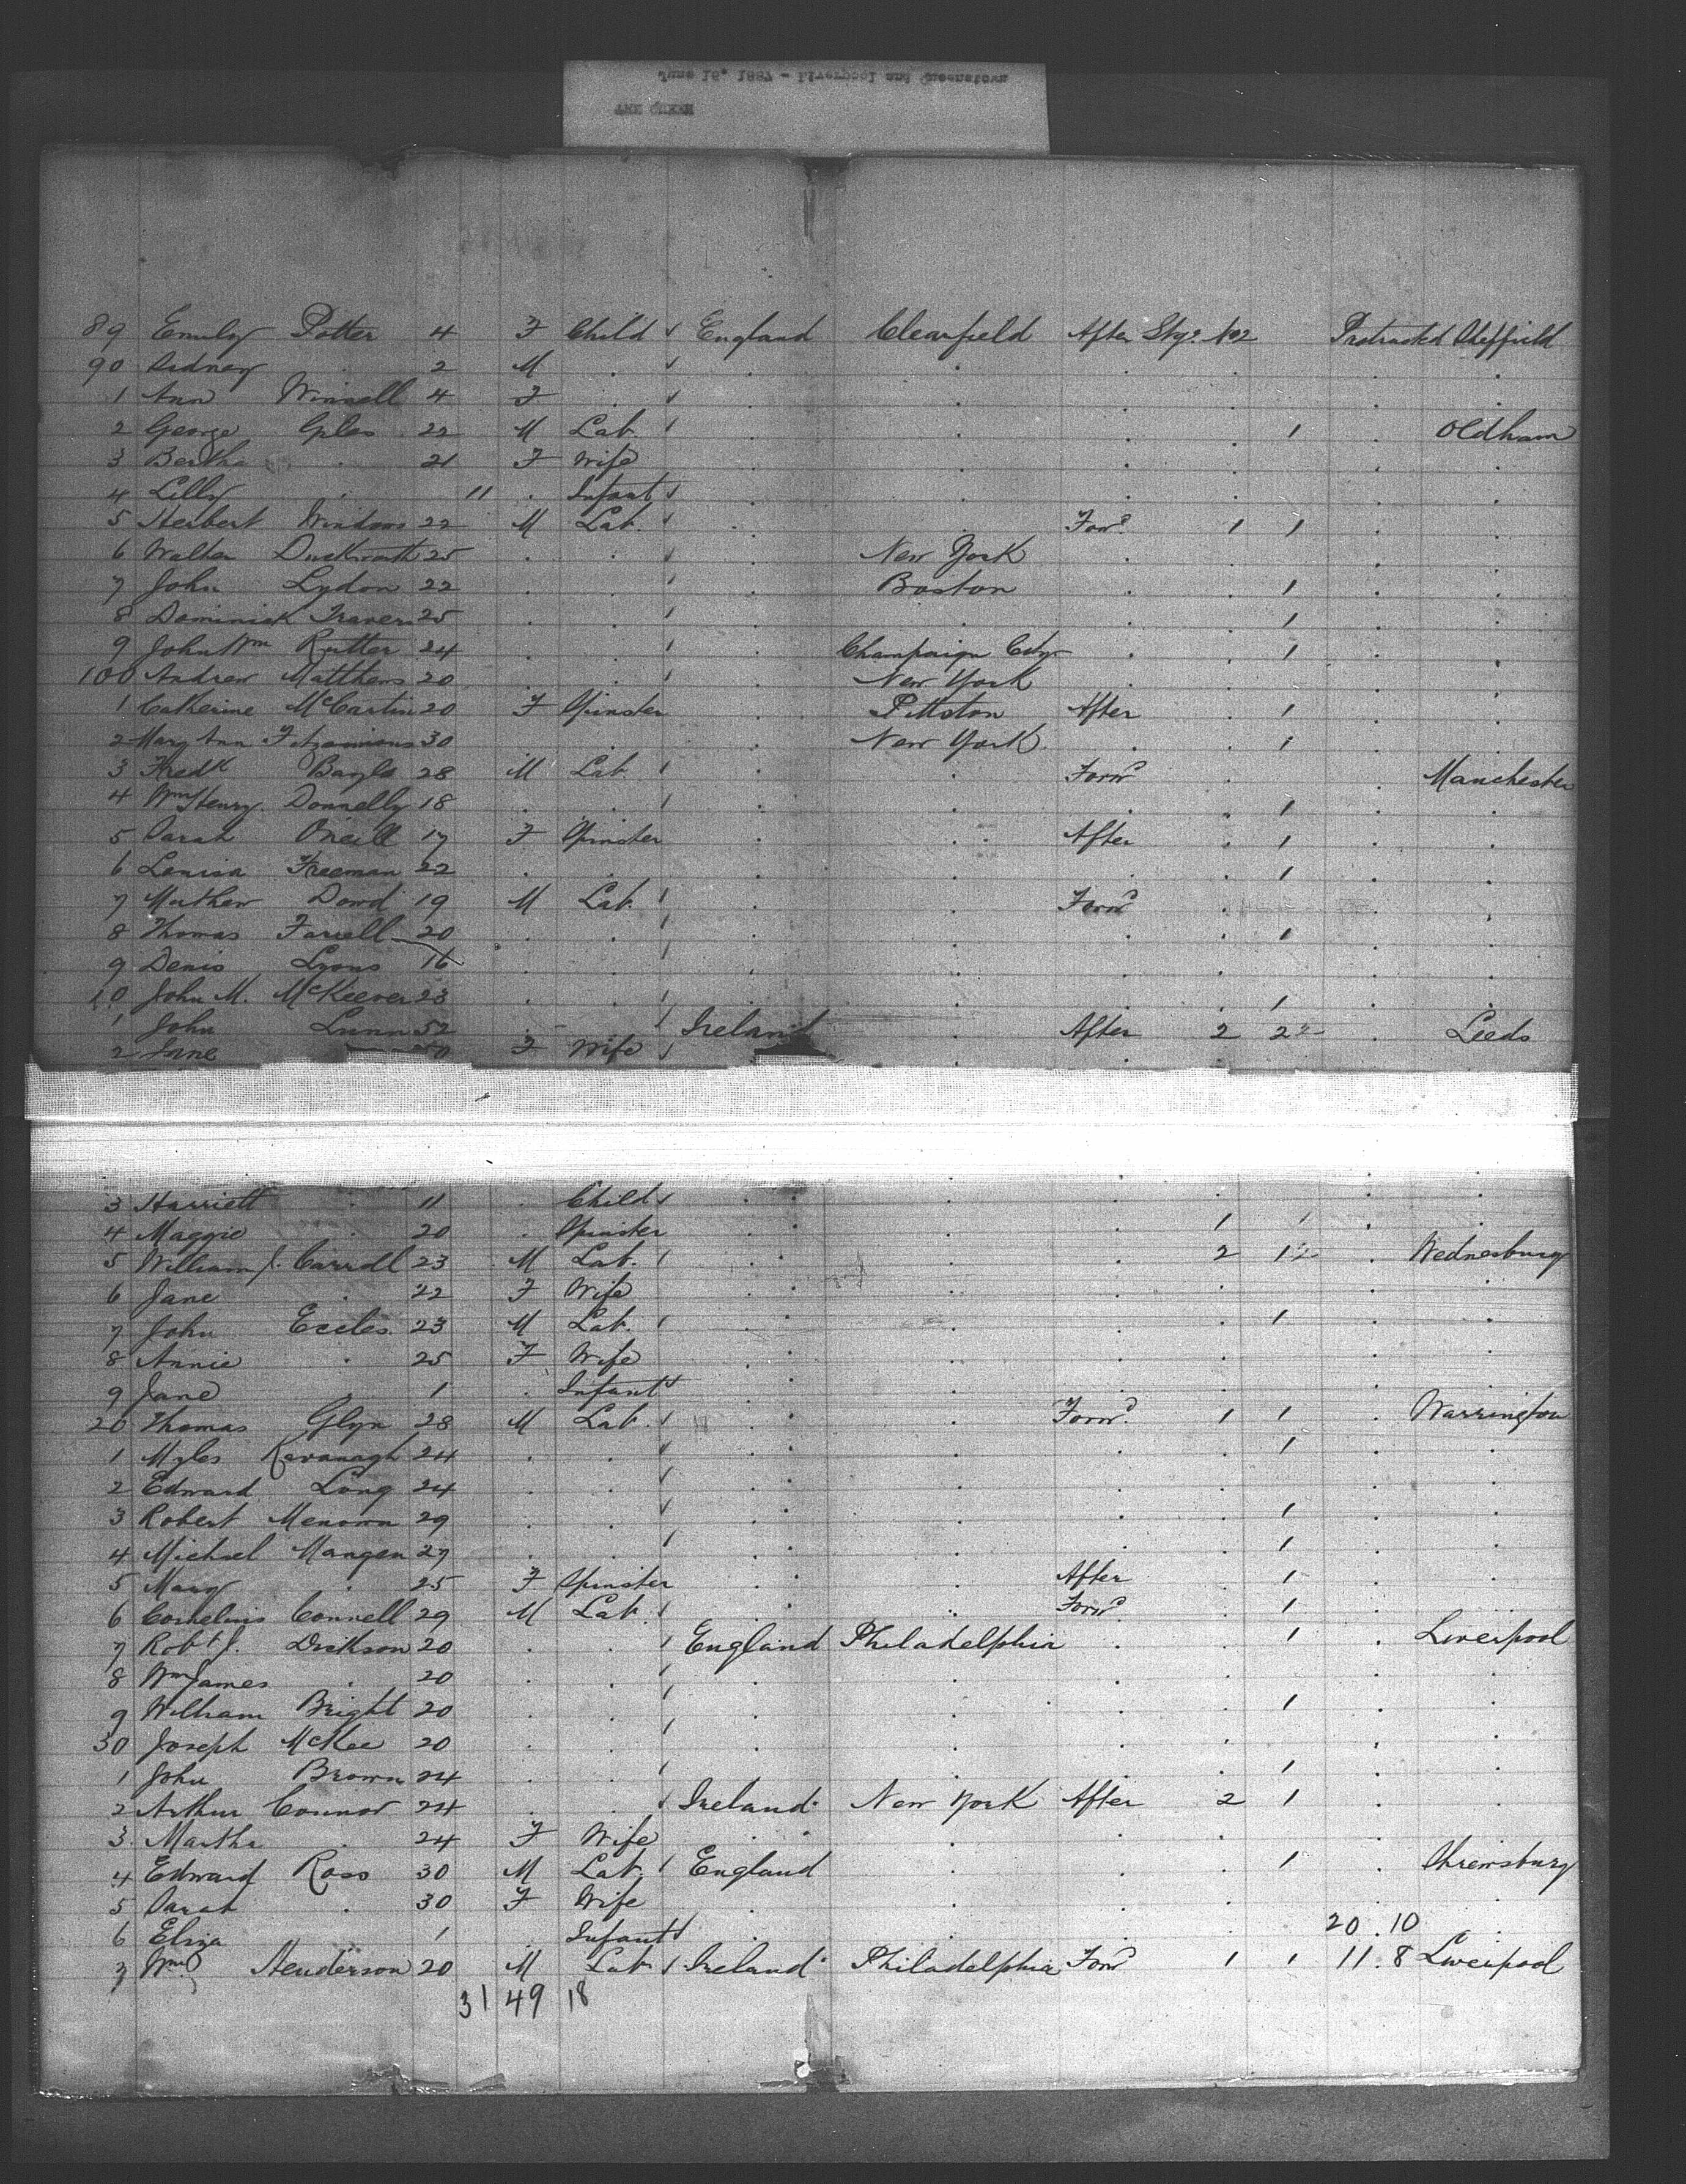 June 16, 1887 - Liverpool and Queenstown
THE QUEEN
89 Emily Potter 4 F Child England Clearfield After Stge No2 Protracted Sheffield
90 Sidney 2 M
1 Ann Winnell 4 F
2 George Giles 22 M Lab. 1 Oldham
3 Bertha 21 F Wife
4 Lilly 11 Infant
5 Herbert Windows 22 M Lab. Forwd 1 1
6 Walter Duckworth 25 New York
7 John Lydon 22 Boston 1
8 Dominick Travers 25 1
9 John Wm Rutter 24 Champaign City 1
100 Andrew Matthews 20 New York
1 Catherine McCartin 20 F Spinster Pittston After 1
2 Mary Ann Fitzsimons 30 New York 1
3 Fredk Bayle 28 M Lab Forwd Manchester
4 Wm Henry Donnelly 18 1
5 Sarah Oneill 17 F Spinster After 1
6 Louisa Freeman 22 1
7 Mathew Dowd 19 M Lab. Forwd
8 Thomas Farrell 20 1
9 Denis Lyons 16
10 John M. McKeever 23 1
1 John Lunn 52 Ireland After 2 22 Leeds
2 Jane F Wife
3 Harriett 11 Child
4 Maggie 20 Spinster 1 1
5 William J. Carroll 23 M Lab. 2 12 Wednesbury
6 Jane 22 F Wife
7 John Eccles 23 M Lab. 1
8 Annie 25 F Wife
9 Jane 1 Infant
20 Thomas Glyn 28 M Lab. Forwd 1 1 Warrington
1 Myles Kavanagh 24 1
2 Edward Long 24
3 Robert Menown 29 1
4 Michael Mangen 27 1
5 Mary 25 F Spinster After 1
6 Cornelius Connell 29 M Lab. Forwd 1
7 Robt J. Dickson 20 England Philadelphia 1 Liverpool
8 Wm James 20
9 William Bright 20 1
30 Joseph McKee 20
1 John Brown 24 1
2 Arthur Connor 24 Ireland New York After 2 1
3 Martha 24 F Wife
4 Edward Ross 30 M Lab. England 1 Shrewsbury
5 Sarah 30 F Wife
6 Eliza 1 Infant 20.10
7 Wm Henderson 20 M Lab Ireland Philadelphia Forwd 1 1 11.8 Liverpool
31 49 18